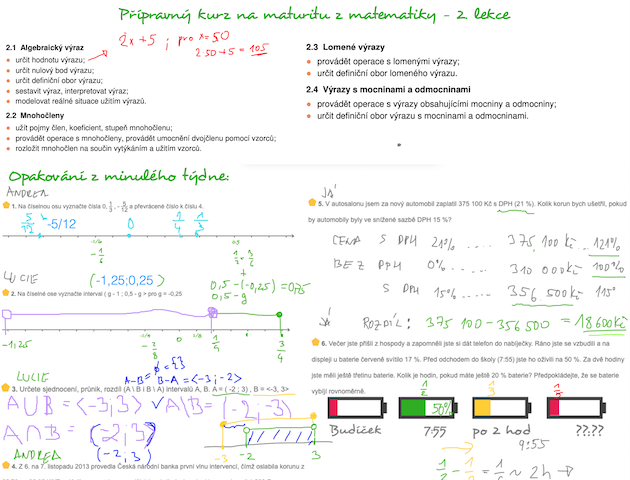 Přípravný kurz na maturitu z matematiky - 2. lekce
2.1 Algebraický výraz
2x+5 ; pro x=50
2·50+5 = 105
určit hodnotu výrazu;
určit nulový bod výrazu;
určit definiční obor výrazu;
sestavit výraz, interpretovat výraz;
modelovat reálné situace užitím výrazů.
2.2 Mnohočleny
užít pojmy člen, koeficient, stupeň mnohočlenu;
provádět operace s mnohočleny, provádět umocnění dvojčlenu pomocí vzorců;
rozložit mnohočlen na součin vytýkáním a užitím vzorců.
2.3 Lomené výrazy
provádět operace s lomenými výrazy;
určit definiční obor lomeného výrazu.
2.4 Výrazy s mocninami a odmocninami
provádět operace s výrazy obsahujícími mocniny a odmocniny;
určit definiční obor výrazu s mocninami a odmocninami.
Opakování z minulého týdne:
ANDREA
1. Na číselnou osu vyznačte čísla 0, 1/3, -5/12 a převrácené číslo k číslu 4.
5/12 -5/12 0 1/4 1/3
-1/6
LUCIE (-1,25;0,25)
0,5-(-0,25) = 0,75
0,5-g
2. Na číselné ose vyznačte interval ( g - 1 ; 0,5 - g > pro g = -0,25
-1,25 -2/8 0 1/4 3/4
A-B= B-A = <-3;-2>
LUCIE
3. Určete sjednocení, průnik, rozdíl (A \ B i B \ A) intervalů A, B. A = ( -2 ; 3) , B = <-3, 3>
A∪B = <-3;3> ✓ A\B= (-2,-3)
A∩B = (-2;3)
(-2;3)
-3 -2 3
ANDREA
4. Z 6. na 7. listopadu 2013 provedla Česká národní banka první vlnu intervencí, čímž oslabila korunu z
JÁ
5. V autosalonu jsem za nový automobil zaplatil 375 100 Kč s DPH (21 %). Kolik korun bych ušetřil, pokud
by automobily byly ve snížené sazbě DPH 15 %?
CENA S DPH 21% .... 375 100 Kč ... 121%
BEZ DPH 0% .... 310 000 Kč 100%
S DPH 15% .... 356 500 Kč 115
JÁ ROZDÍL: 375 100 - 356 500 = 18 600 Kč
6. Večer jste přišli z hospody a zapomněli jste si dát telefon do nabíječky. Ráno jste se vzbudili a na
displeji u baterie červeně svítilo 17 %. Před odchodem do školy (7:55) jste ho oživili na 50 %. Za dvě hodiny
jste měli ještě třetinu baterie. Kolik je hodin, pokud máte ještě 20 % baterie? Předpokládejte, že se baterie
vybíjí rovnoměrně.
1/2 1/3
50%
Budíček 7:55 po 2 hod ??.??
9:55
1/2 - 1/3 = 1/6 ~ 2h